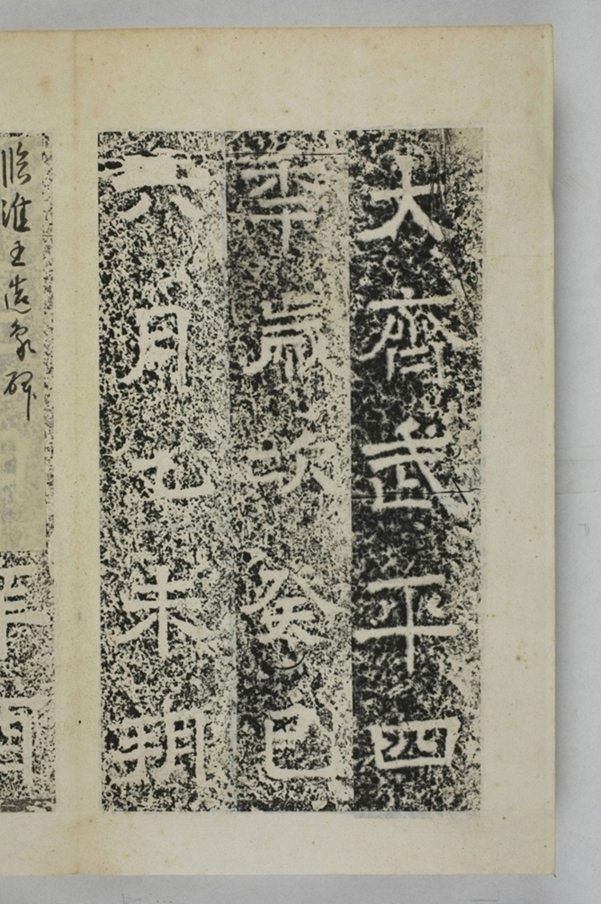 大齊武平四
年歲次癸巳
六月乙未朔
臨淮王造象碑